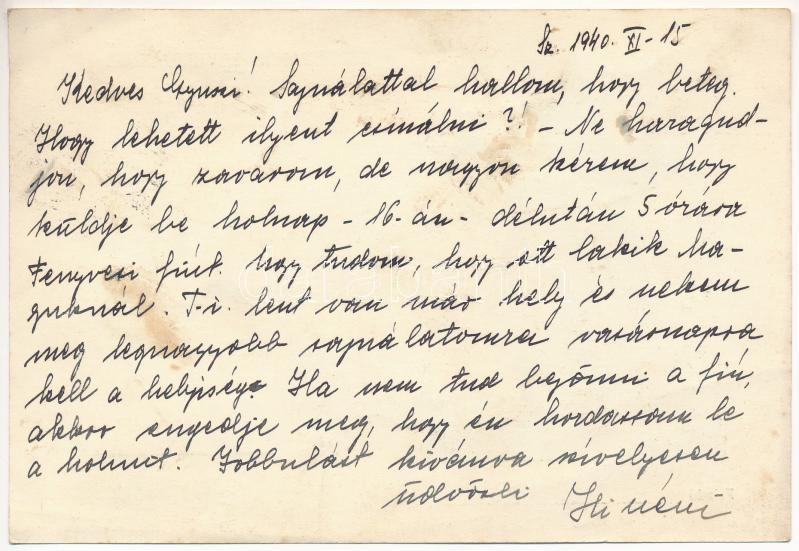 Sz. 1940. XI-15
Kedves Gyuszi! Sajnálattal hallom, hogy beteg.
Hogy lehetett ilyent csinálni?! - Ne haragud-
jon, hogy zavarom, de nagyon kérem, hogy
küldje be holnap - 16-án - délután 5 órára
Fenyvesi fiút. Úgy tudom, hogy ott lakik ma-
guknál. T.i. lent van már hely és nekem
meg legnagyobb sajnálatomra vasárnapra
kell a helyiség. Ha nem tud bejönni a fiú,
akkor engedje meg, hogy én hordassam le
a holmit. Jobbulást kívánva szívélyesen
üdvözli Ili néni